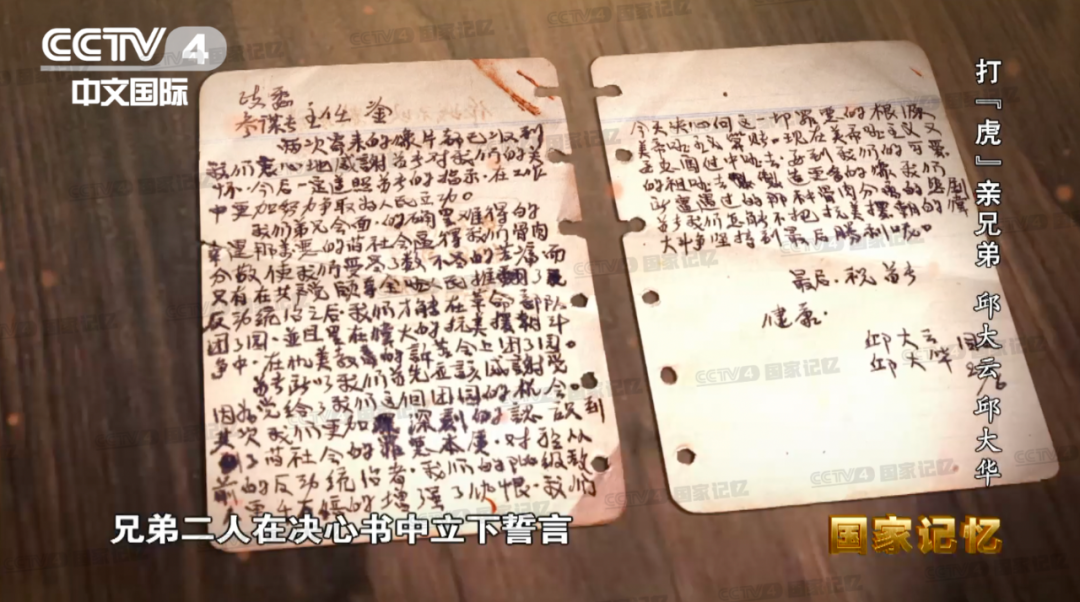 CCTV 4
中文国际
打『虎』亲兄弟 邱大云邱大华
政委
参谋长 主任 鉴
两次寄来的像片都已收到
我们衷心地感谢首长对我们的关
怀·今后一定遵照首长的指示·在工作
中更加努力争取为人民立功。
我们弟兄会面·的确是难得的
幸运那万恶的旧社会逼得我们骨肉
分散使我们受尽了数不尽的苦痛而
只有在共产党领导全国人民推翻了
反动统治之后·我们才能在革命部队
团了园·并且是在伟大的抗美援朝斗
争中·在抗美
首长所以我们首先应该感谢党
因为党给了我们这个团园的机会。
其次我们更加深刻的认识到
了旧社会的罪恶本质·对于从
前的反动统治者·我们的阶级敌
增强了仇恨·我们
今天决心向这一切罪恶的根源
美帝国主义算账。现在美帝国主义又
的祖国去製造更多的像我们
所遭遇过的那种骨肉分离的悲剧
首长我们怎能不把抗美援朝的
大斗争坚持到最后勝利呢。
最后·祝首长
健康·
邱大云
邱大华
兄弟二人在决心书中立下誓言
国家记忆